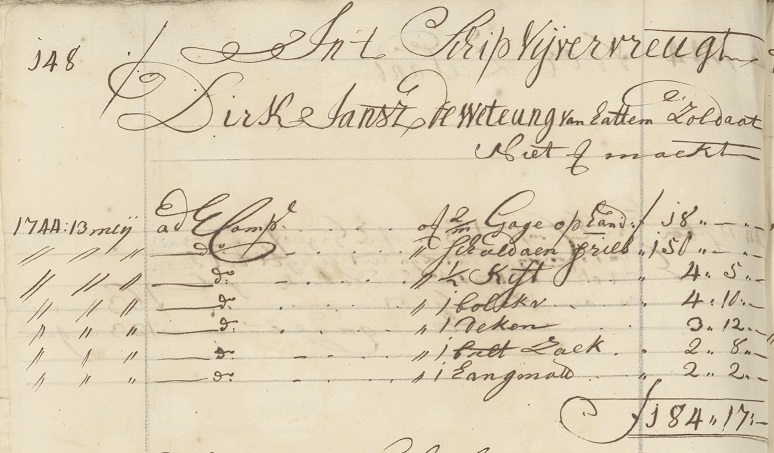 148 Int Schip Vijvervreugt
Dirk Jansz de Weteung van Eattem Zoldaat
Niet gemackt
1744: 13 meij ad E Compe of 2/m Gage op Land f 18 " - " -
" " " do " Schuldaen brieb " 150 " - " -
" " " do " 1/2 Kist " 4 " 5 " -
" " " do " 1 bolskr 4 " 10 " -
" " " do " 1 Deken 3 " 12 " -
" " " do " 1 bult Zaek " 2 " 8 " -
" " " do " 1 Langmatt " 2 " 2 " -
f 184 " 17 " -